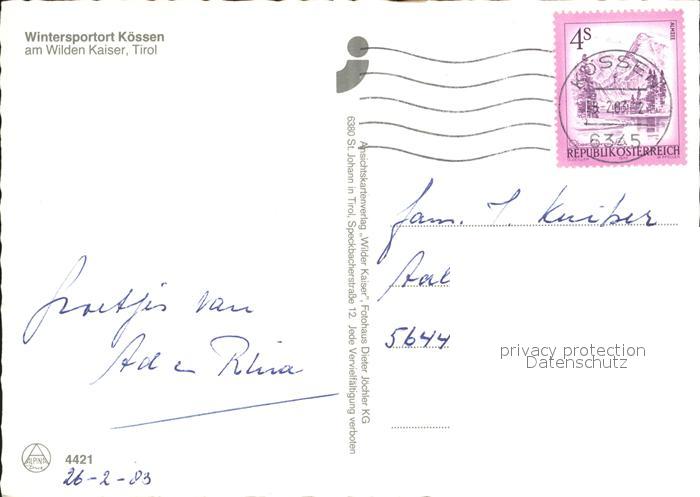 Wintersportort Kössen
am Wilden Kaiser, Tirol
4S
ALMSEE
KÖSSEN
6345
REPUBLIK ÖSTERREICH
Ansichtskartenverlag „Wilder Kaiser", Fotohaus Dieter Jöchler KG
6380 St. Johann in Tirol, Speckbacherstraße 12. Jede Vervielfältigung verboten
fam. J. Kuiper
5644
privacy protection
Datenschutz
Groetjes van
Ad en Rina
ALPINA
4421
26-2-83